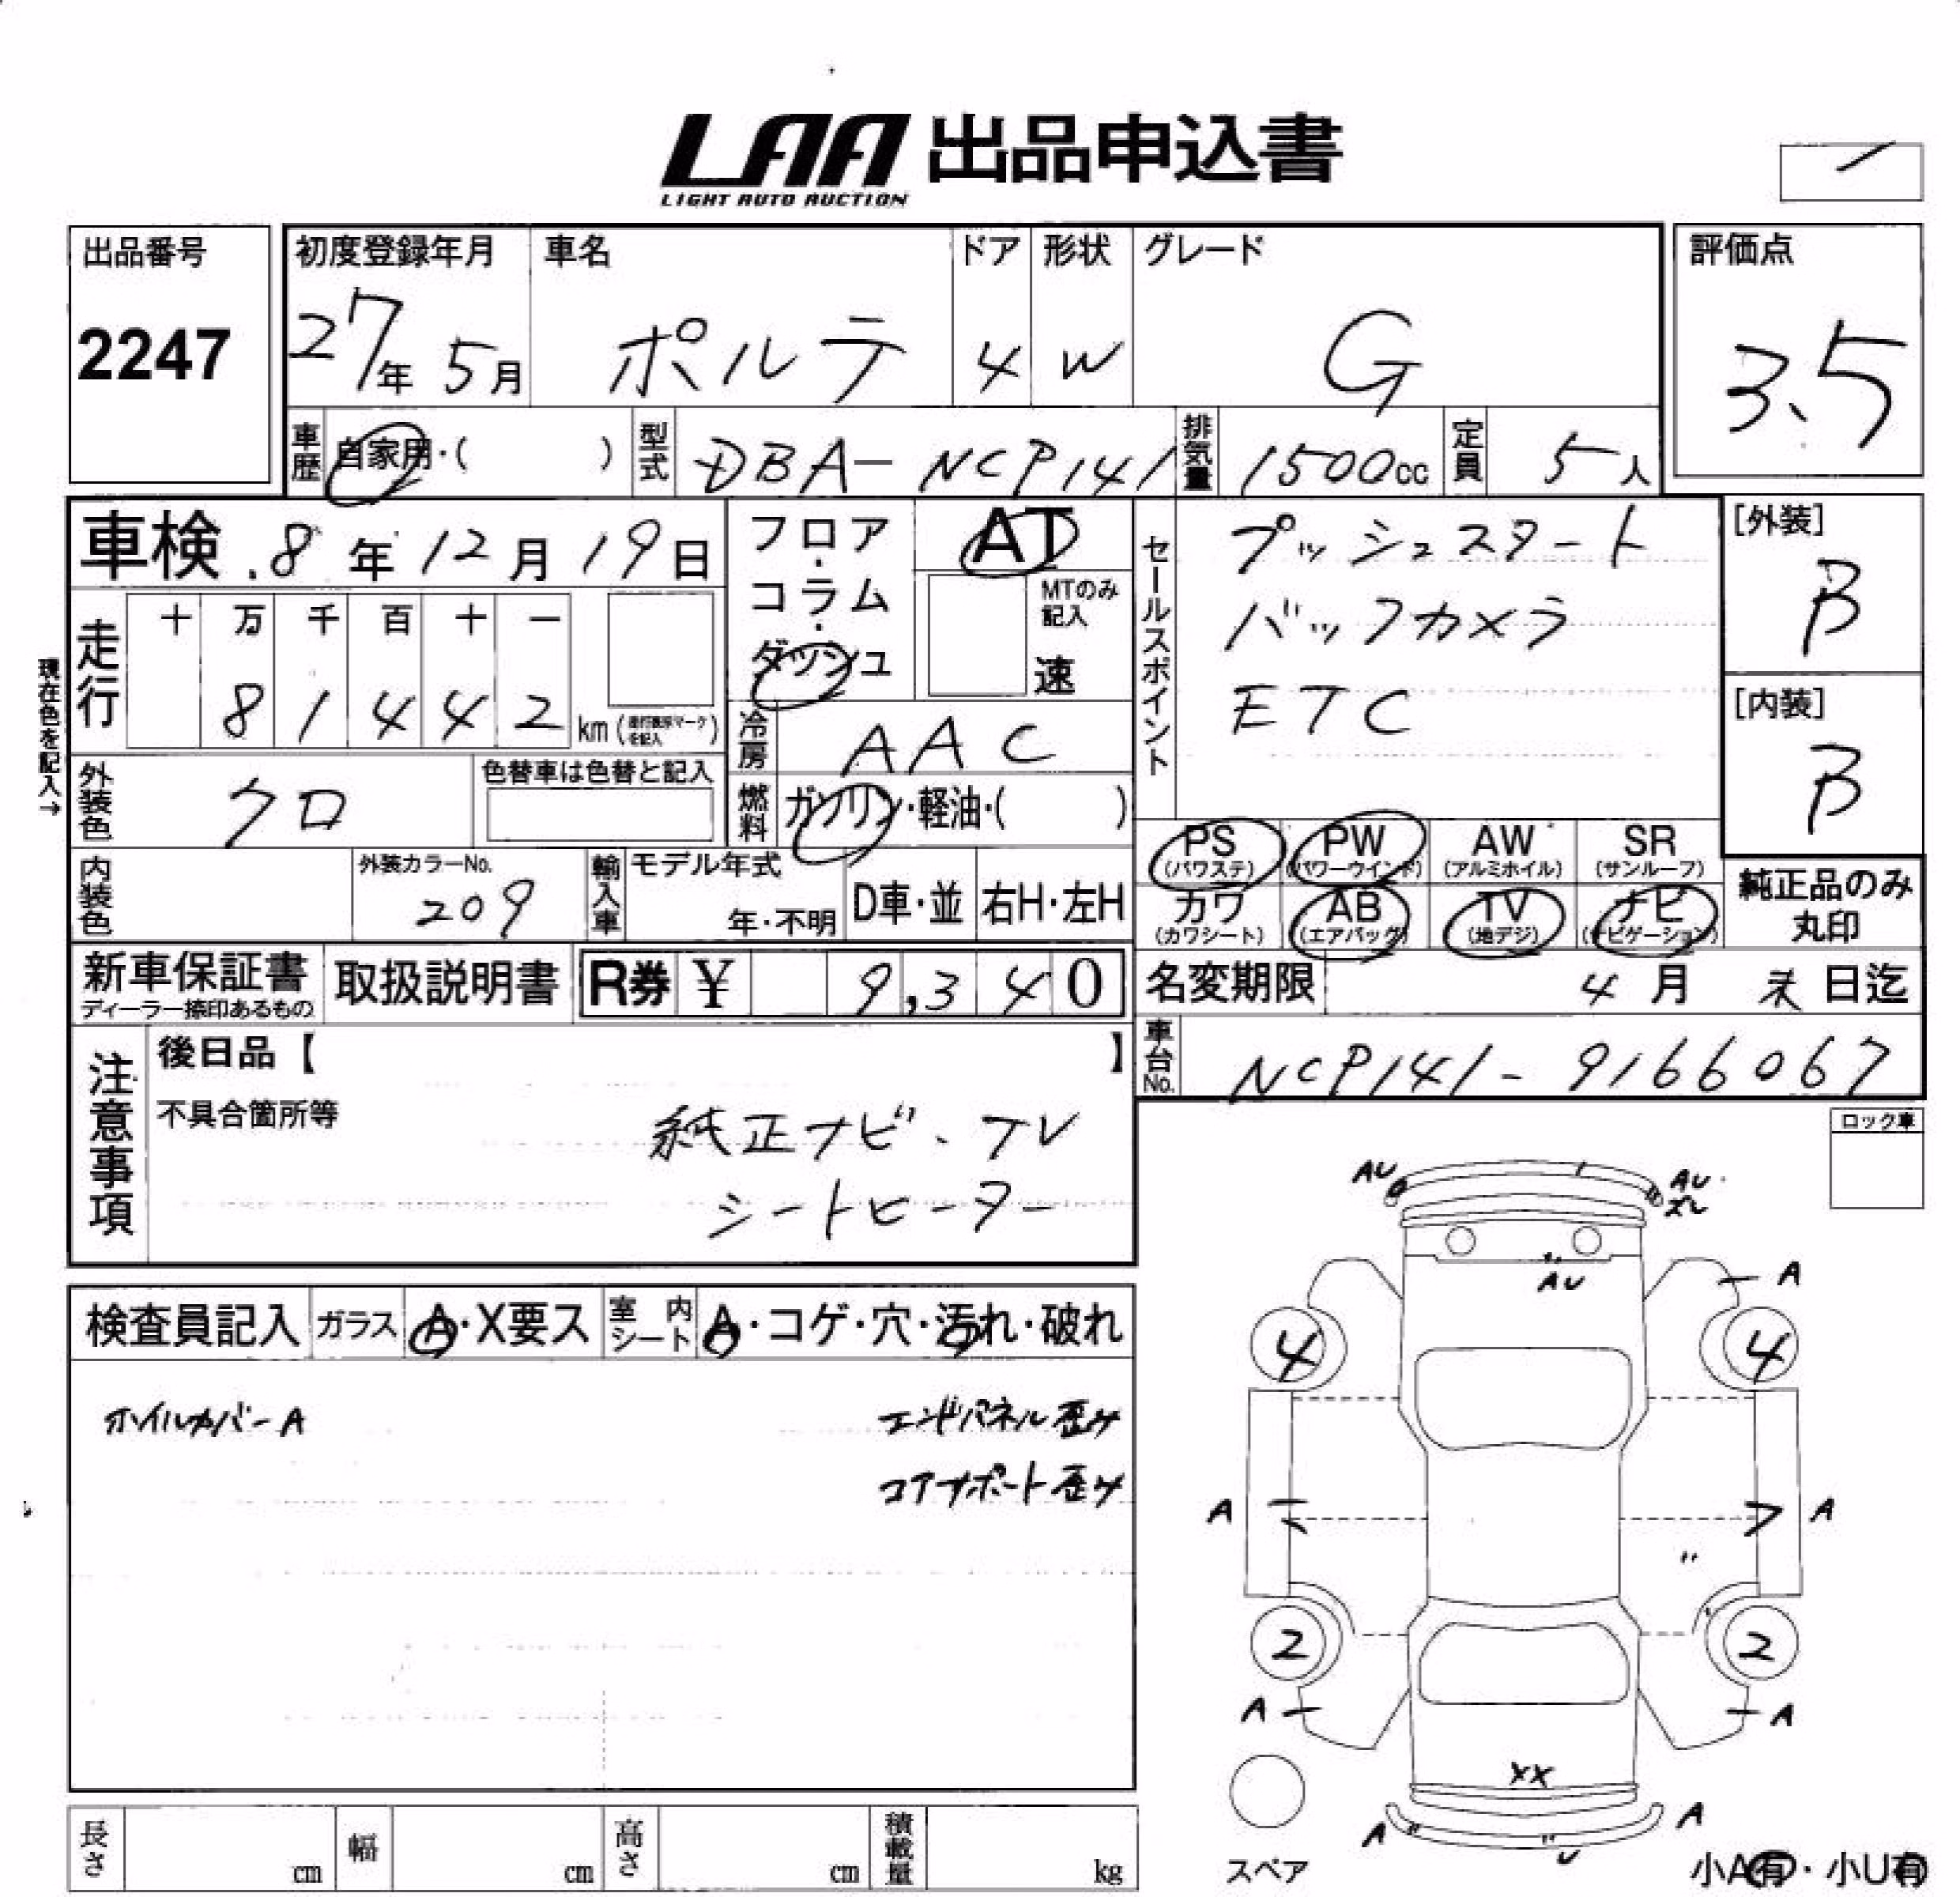 LAA 出品申込書
LIGHT AUTO AUCTION
出品番号
2247
初度登録年月
27年 5月
車名
ポルテ
ドア
4
形状
W
グレード
G
評価点
3.5
車歴 自家用・( )
型式 DBA-NCP141
排気量 1500cc
定員 5人
車検 8年12月19日
現在色を記入→
走行 十 万 千 百 十 一
8 1 4 4 2 km
フロア・コラム・ダッシュ
AT
MTのみ記入
速
冷房 AAC
燃料 ガソリン・軽油・( )
セールスポイント
プッシュスタート
バックカメラ
ETC
[外装]
B
[内装]
B
外装色 クロ
色替車は色替と記入
内装色
外装カラーNo.
209
輸入車 モデル年式
年・不明
D車・並 右H・左H
PS (パワステ)
PW (パワーウインド)
AW (アルミホイル)
SR (サンルーフ)
カワ (カワシート)
AB (エアバッグ)
TV (地デジ)
ナビ (ナビゲーション)
純正品のみ
丸印
新車保証書
ディーラー捺印あるもの
取扱説明書
R券 ¥ 9,340
名変期限 4月 末日迄
車台No. NCP141-9166067
注意事項
後日品【 】
不具合箇所等
純正ナビ、TV
シートヒーター
ロック車
検査員記入 ガラス A・X要ス 室内シート A・コゲ・穴・汚れ・破れ
ホイルカバーA
エンドパネル歪み
コアサポート歪み
AU
AU
AU
A
4
4
A
A
2
2
A
A
XX
A
A
U
スペア
小A有・小U有
長さ cm
幅 cm
高さ cm
積載量 kg